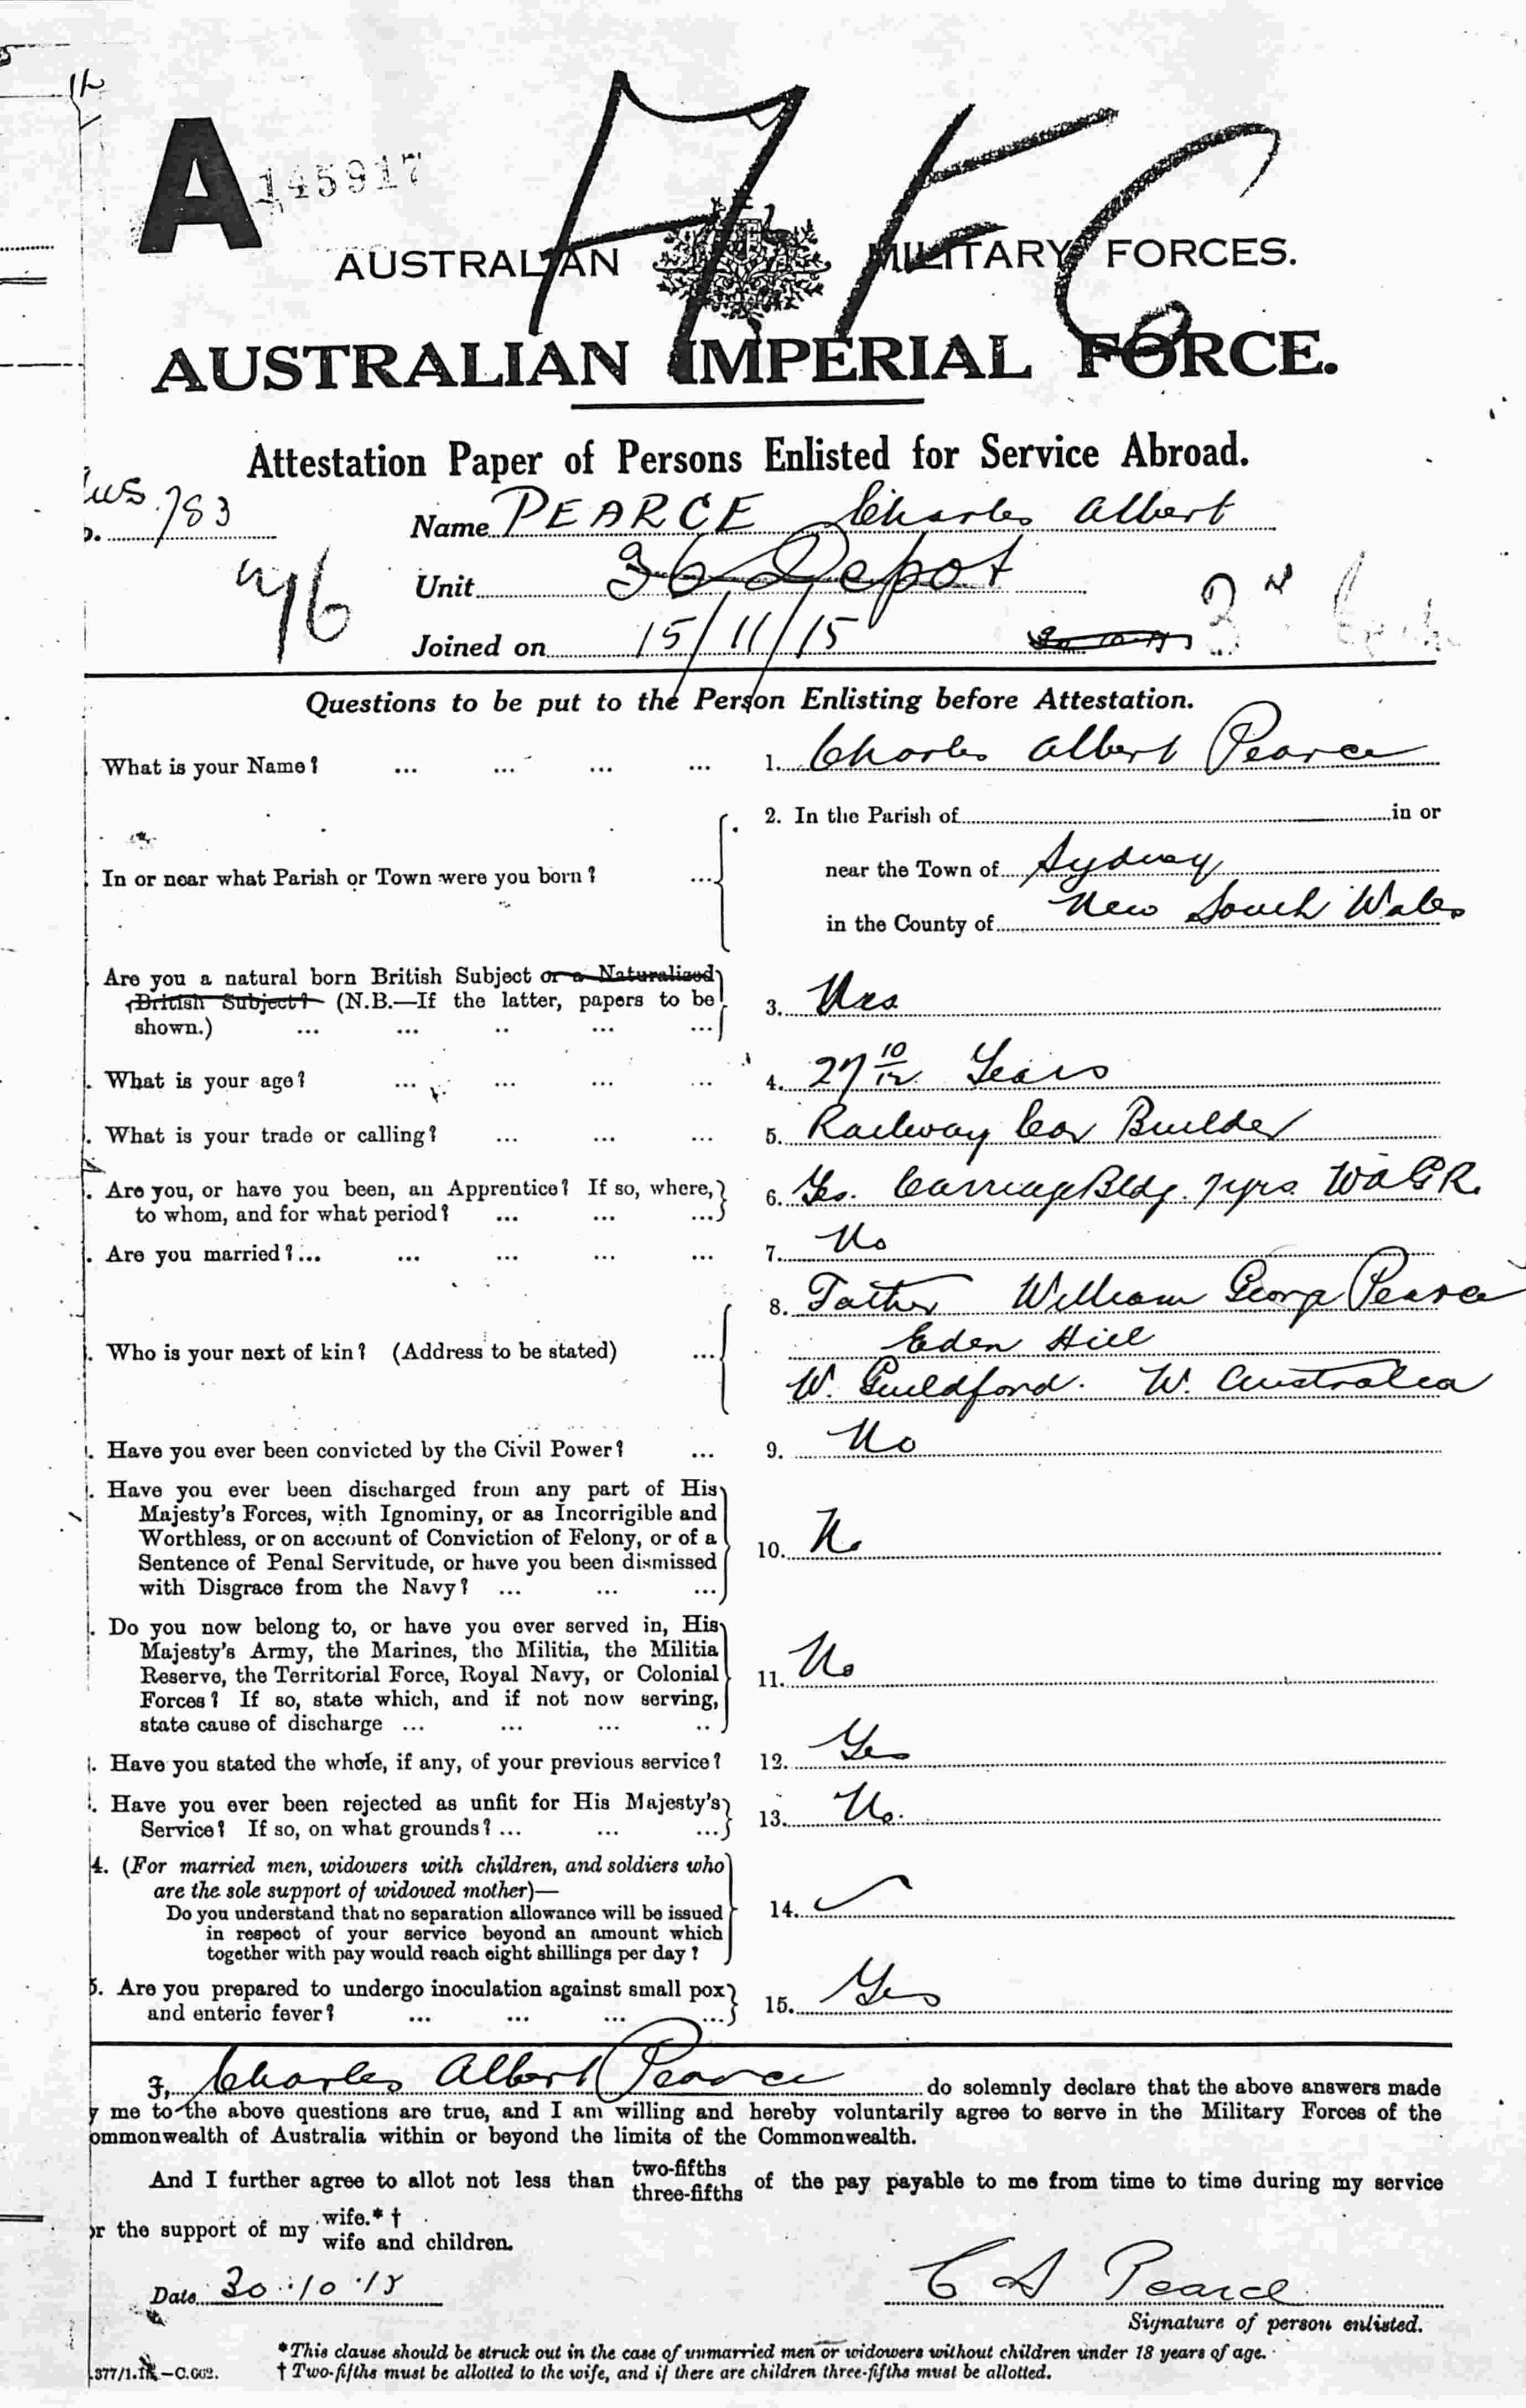 A 145917
A F C
AUSTRALIAN MILITARY FORCES.
AUSTRALIAN IMPERIAL FORCE.
Attestation Paper of Persons Enlisted for Service Abroad.
783 Name PEARCE Charles Albert
Unit 36 Depot
Joined on 15/11/15
Questions to be put to the Person Enlisting before Attestation.
What is your Name? ... ... ... ... 1. Charles Albert Pearce
2. In the Parish of in or
In or near what Parish or Town were you born? ... near the Town of Sydney
in the County of New South Wales
Are you a natural born British Subject or a Naturalised
British Subject? (N.B.—If the latter, papers to be 3. Yes
shown.) ... ... .. ... ...
. What is your age? ... ... ... ... 4. 27 10/12 Years
. What is your trade or calling? ... ... ... 5. Railway Car Builder
. Are you, or have you been, an Apprentice? If so, where, 6. Yes. Carriage Bldg. 7yrs. WAGR.
to whom, and for what period? ... ... ...
. Are you married?... ... ... ... 7. No
8. Father William George Pearce
. Who is your next of kin? (Address to be stated) ... Eden Hill
W. Guildford. W. Australia
. Have you ever been convicted by the Civil Power? ... 9. No
. Have you ever been discharged from any part of His
Majesty's Forces, with Ignominy, or as Incorrigible and
Worthless, or on account of Conviction of Felony, or of a 10. No
Sentence of Penal Servitude, or have you been dismissed
with Disgrace from the Navy? ... ... ...
. Do you now belong to, or have you ever served in, His
Majesty's Army, the Marines, the Militia, the Militia
Reserve, the Territorial Force, Royal Navy, or Colonial 11. No
Forces? If so, state which, and if not now serving,
state cause of discharge ... ... ... ..
. Have you stated the whole, if any, of your previous service? 12. Yes
. Have you ever been rejected as unfit for His Majesty's 13. No.
Service? If so, on what grounds? ... ... ...
4. (For married men, widowers with children, and soldiers who
are the sole support of widowed mother)—
Do you understand that no separation allowance will be issued 14.
in respect of your service beyond an amount which
together with pay would reach eight shillings per day?
5. Are you prepared to undergo inoculation against small pox 15. Yes
and enteric fever? ... ... ... ...
I, Charles Albert Pearce do solemnly declare that the above answers made
y me to the above questions are true, and I am willing and hereby voluntarily agree to serve in the Military Forces of the
ommonwealth of Australia within or beyond the limits of the Commonwealth.
And I further agree to allot not less than two-fifths three-fifths of the pay payable to me from time to time during my service
or the support of my wife.* † wife and children.
Date 30.10.15 C A Pearce
Signature of person enlisted.
*This clause should be struck out in the case of unmarried men or widowers without children under 18 years of age.
† Two-fifths must be allotted to the wife, and if there are children three-fifths must be allotted.